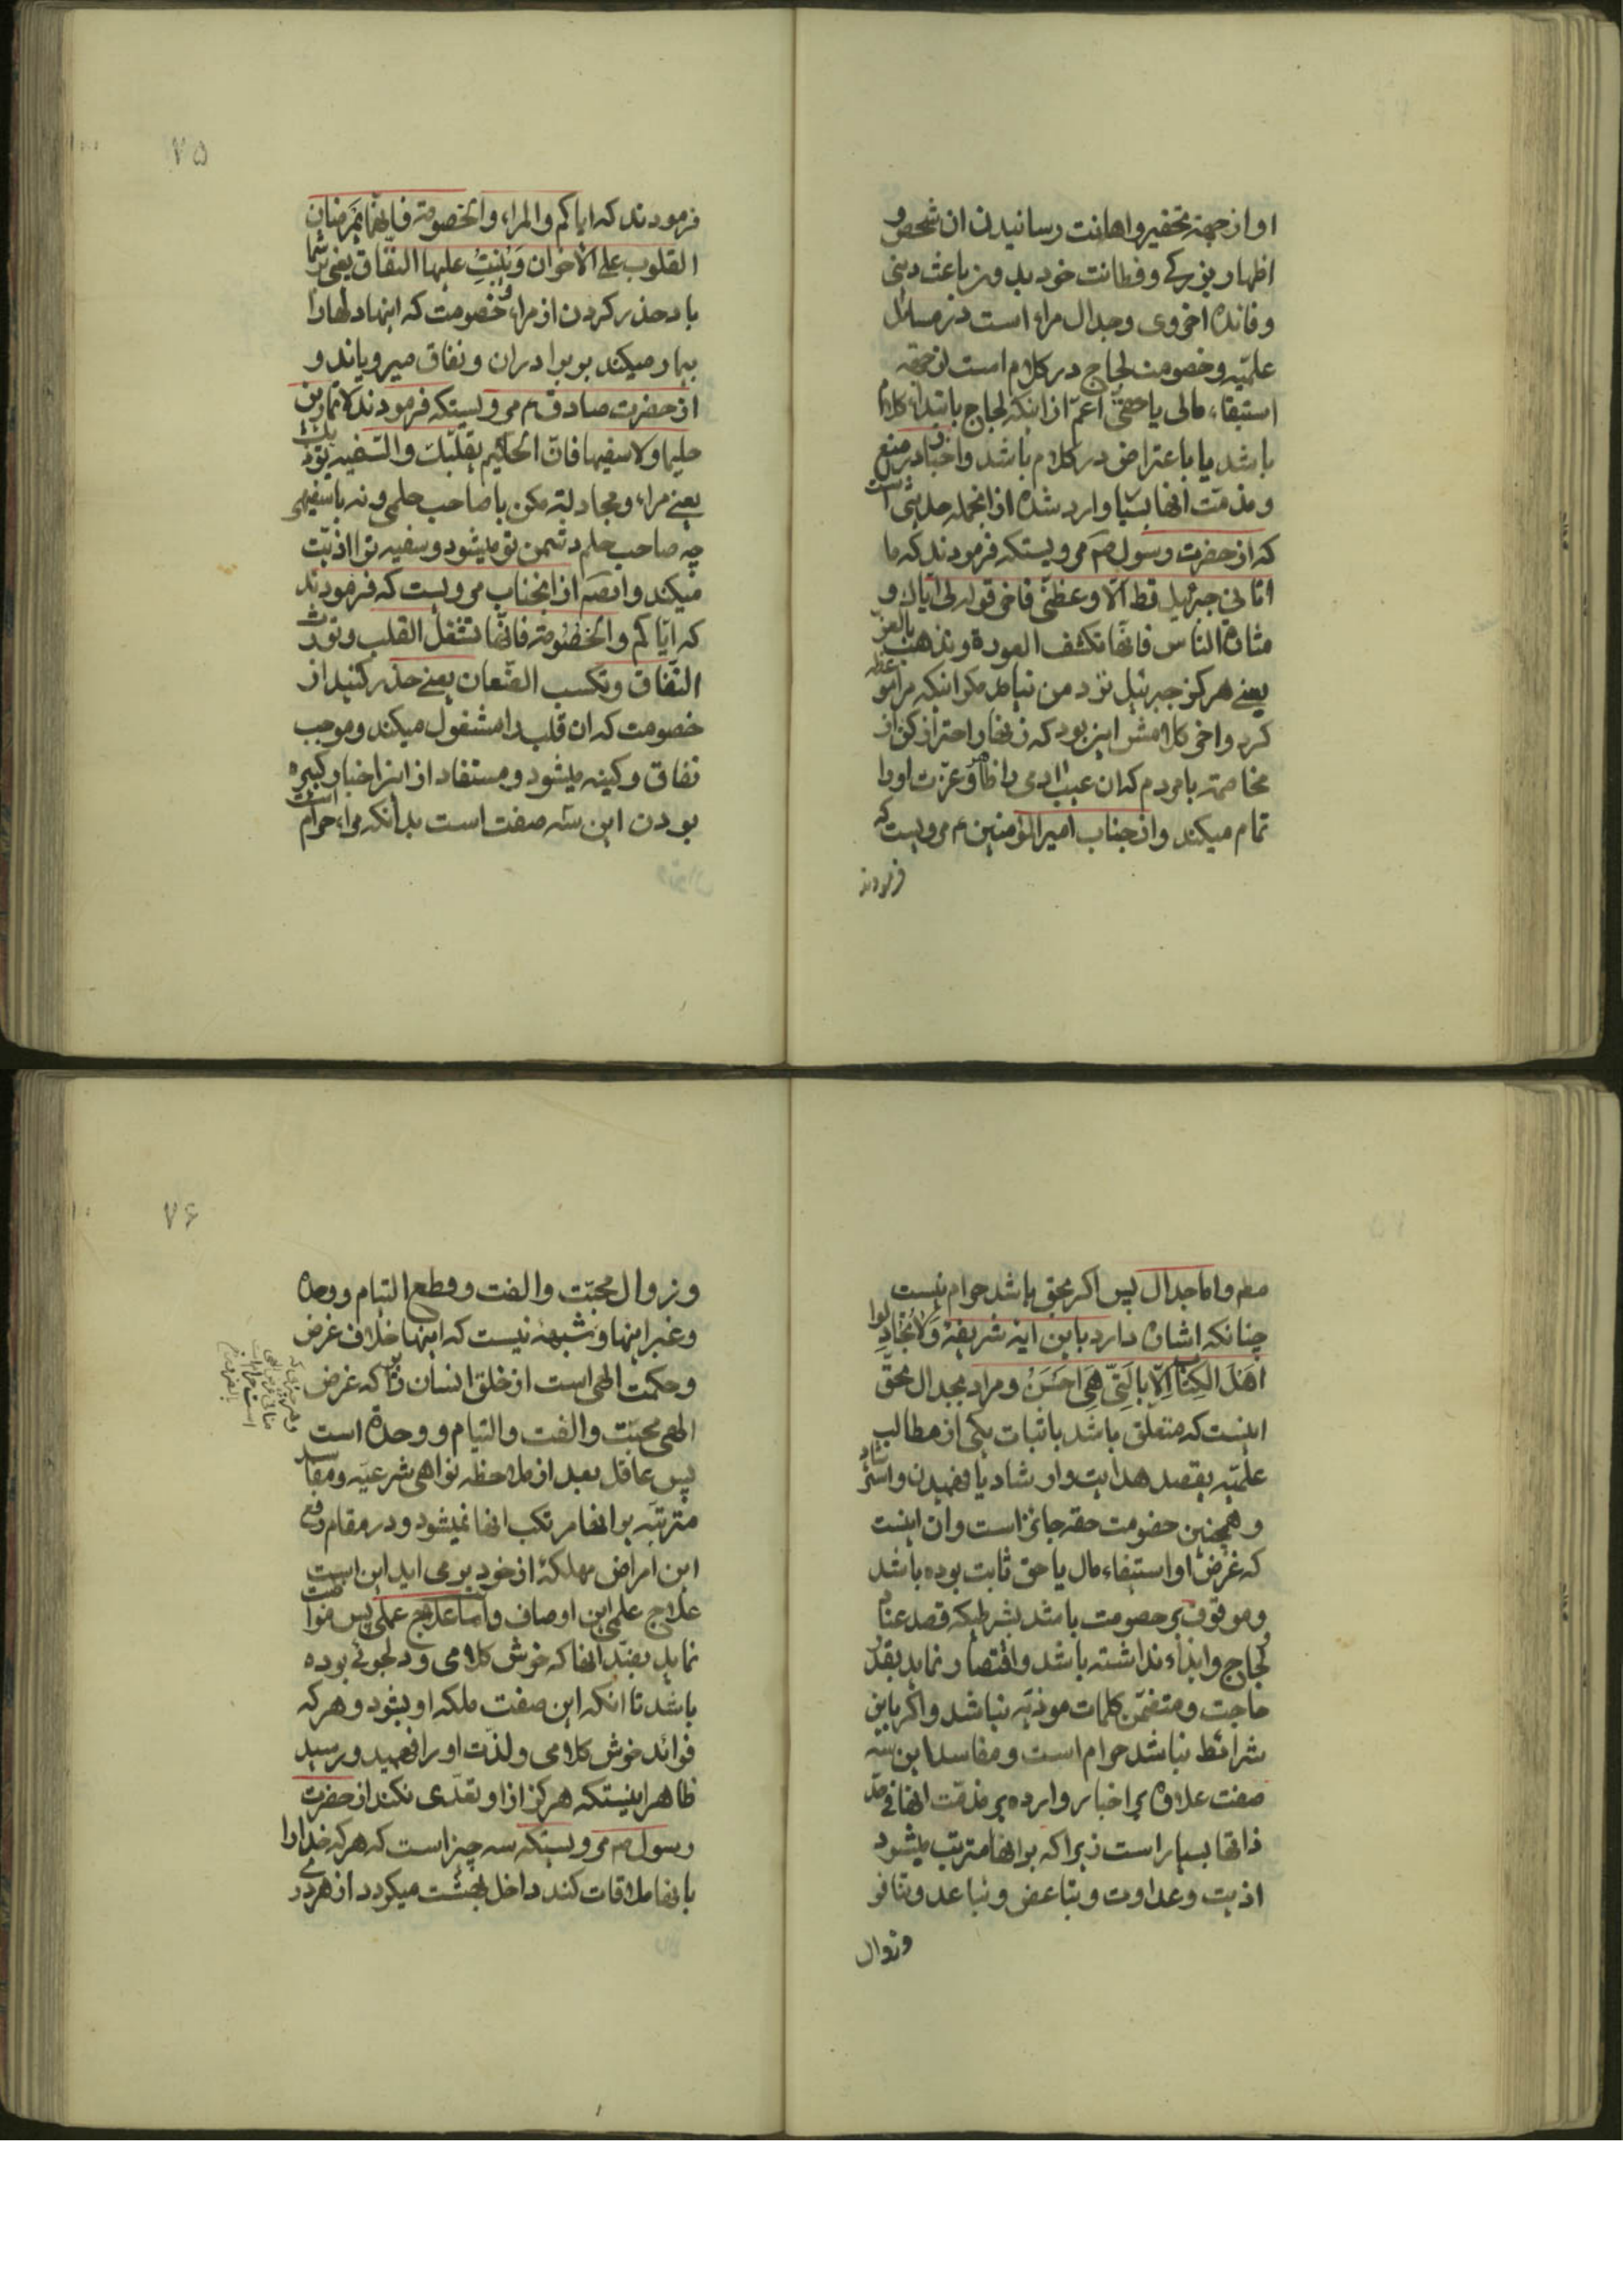 او از جهة تحقیر و اهانت رسانیدن ان شخص و
اظهار بزرکی و فطانت خود بدون باعث دینی
و فائده اخروی و جدال مراء است در مسائل
علمیّه و خصومت لجاج در کلام است از جهة
استیفاء مالی یا حقّی اعمّ از اینکه لجاج بابتداء کلام
باشد یا باعتراض در کلام باشد و اخبار در منع
و مذمّت انها بسیار وارد شده از انجمله حدیثی است
که از حضرت رسول صم مرویستکه فرمودند که ما
اتانی جبرئیل قط الّا و عظنی فاخر قوله لی ایاک و
مشادة الناس فانّها تکشف العورة و تذهب بالعزّ
یعنی هرکز جبرئیل نزد من نیامد مکر اینکه مرا موعظه
کرد و اخر کلامش این بود که زنهار احتراز کن از
مخاصمة بامردم که ان عیب ادمی را ظاهر و عزّت او را
تمام میکند و از جناب امیرالمؤمنین ع مرویست که
فرمودند
۷۵
فرمودند که ایاکم و المراء و الخصومة فانّهما یمرضان
القلوب علی الاخوان و ینبت علیها النفاق یعنی بر شما
باد حذر کردن از مراء و خصومت که اینها دلها را
بیمار میکند بر برادران و نفاق میرویاند و
از حضرت صادق ع مرویستکه فرمودند لا تمارین
حلیما و لا سفیها فانّ الحلیم یقلبک و السّفیه یؤذیک
یعنی مراء و مجادلة مکن با صاحب حلمی و نه با سفیهی
چه صاحب حلم دشمن تو میشود و سفیه تو را اذیّت
میکند و ایضا از انجناب مرویست که فرمودند
که ایّاکم و الخصومة فانّها تشغل القلب و تورث
النّفاق و تکسب الضّغان یعنی حذر کنید از
خصومت که ان قلب را مشغول میکند و موجب
نفاق و کینه میشود و مستفاد از این اخبار کبیره
بودن این سه صفت است بدانکه مراء حرام است
مطم و اما جدال پس اکر بحق باشد حرام نیست
چنانکه اشاره دارد باین ایه شریفه وَلَا تُجَادِلُوا
اَهْلَ الکِتَابِ اِلّا بِالَتّی هِیَ اَحسَنُ و مراد بجدال بحقّ
اینست که متعلق باشد باثبات یکی از مطالب
علمیّه بقصد هدایت و ارشاد یا فهمیدن و استرشاد
و همچنین خصومت حقه جائز است و ان اینست
که غرض او استیفاء مال یا حق ثابت بوده باشد
و موقوف بر خصومت باشد بشرطیکه قصد عناد و
لجاج و ایذاء نداشته باشد و اقتصار نماید بقدر
حاجت و متضمّن کلمات موذیه نباشد و اکر باین
شرائط نباشد حرام است و مفاسد این سه
صفت علاوه بر اخبار وارده بر مذمّت انها فی حدّ
ذاتها بسیار است زیرا که بر انها مترتب میشود
اذیت و عداوت و تباغض و تباعد و تنافر
و زوال
۷۶
و زوال محبّت و الفت و قطع التیام و وحدة
و غیر اینها و شبهه نیست که اینها خلاف غرض
و حکمت الهی است از خلق انسان زیرا که غرض
الهی محبّت و الفت و التیام و وحدة است
پس عاقل بعد از ملاحظه نواهی شرعیّه و مفاسد
مترتبّه بر انها مرتکب انها نمیشود و در مقام رفع
این امراض مهلکة از خود برمی اید این است
علاج علمی این اوصاف و اما علاج عملی پس مواظبت
نماید بضدّ انها که خوش کلامی و دلجوئی بوده
باشد تا انکه این صفت ملکه او بشود و هر که
فوائد خوش کلامی و لذّت او را فهمید و رسید
ظاهر اینستکه هرکز از او تعدّی نکند از حضرت
رسول صم مرویستکه سه چیز است که هر که خدا را
بانها ملاقات کند داخل بهشت میکردد از هر دری